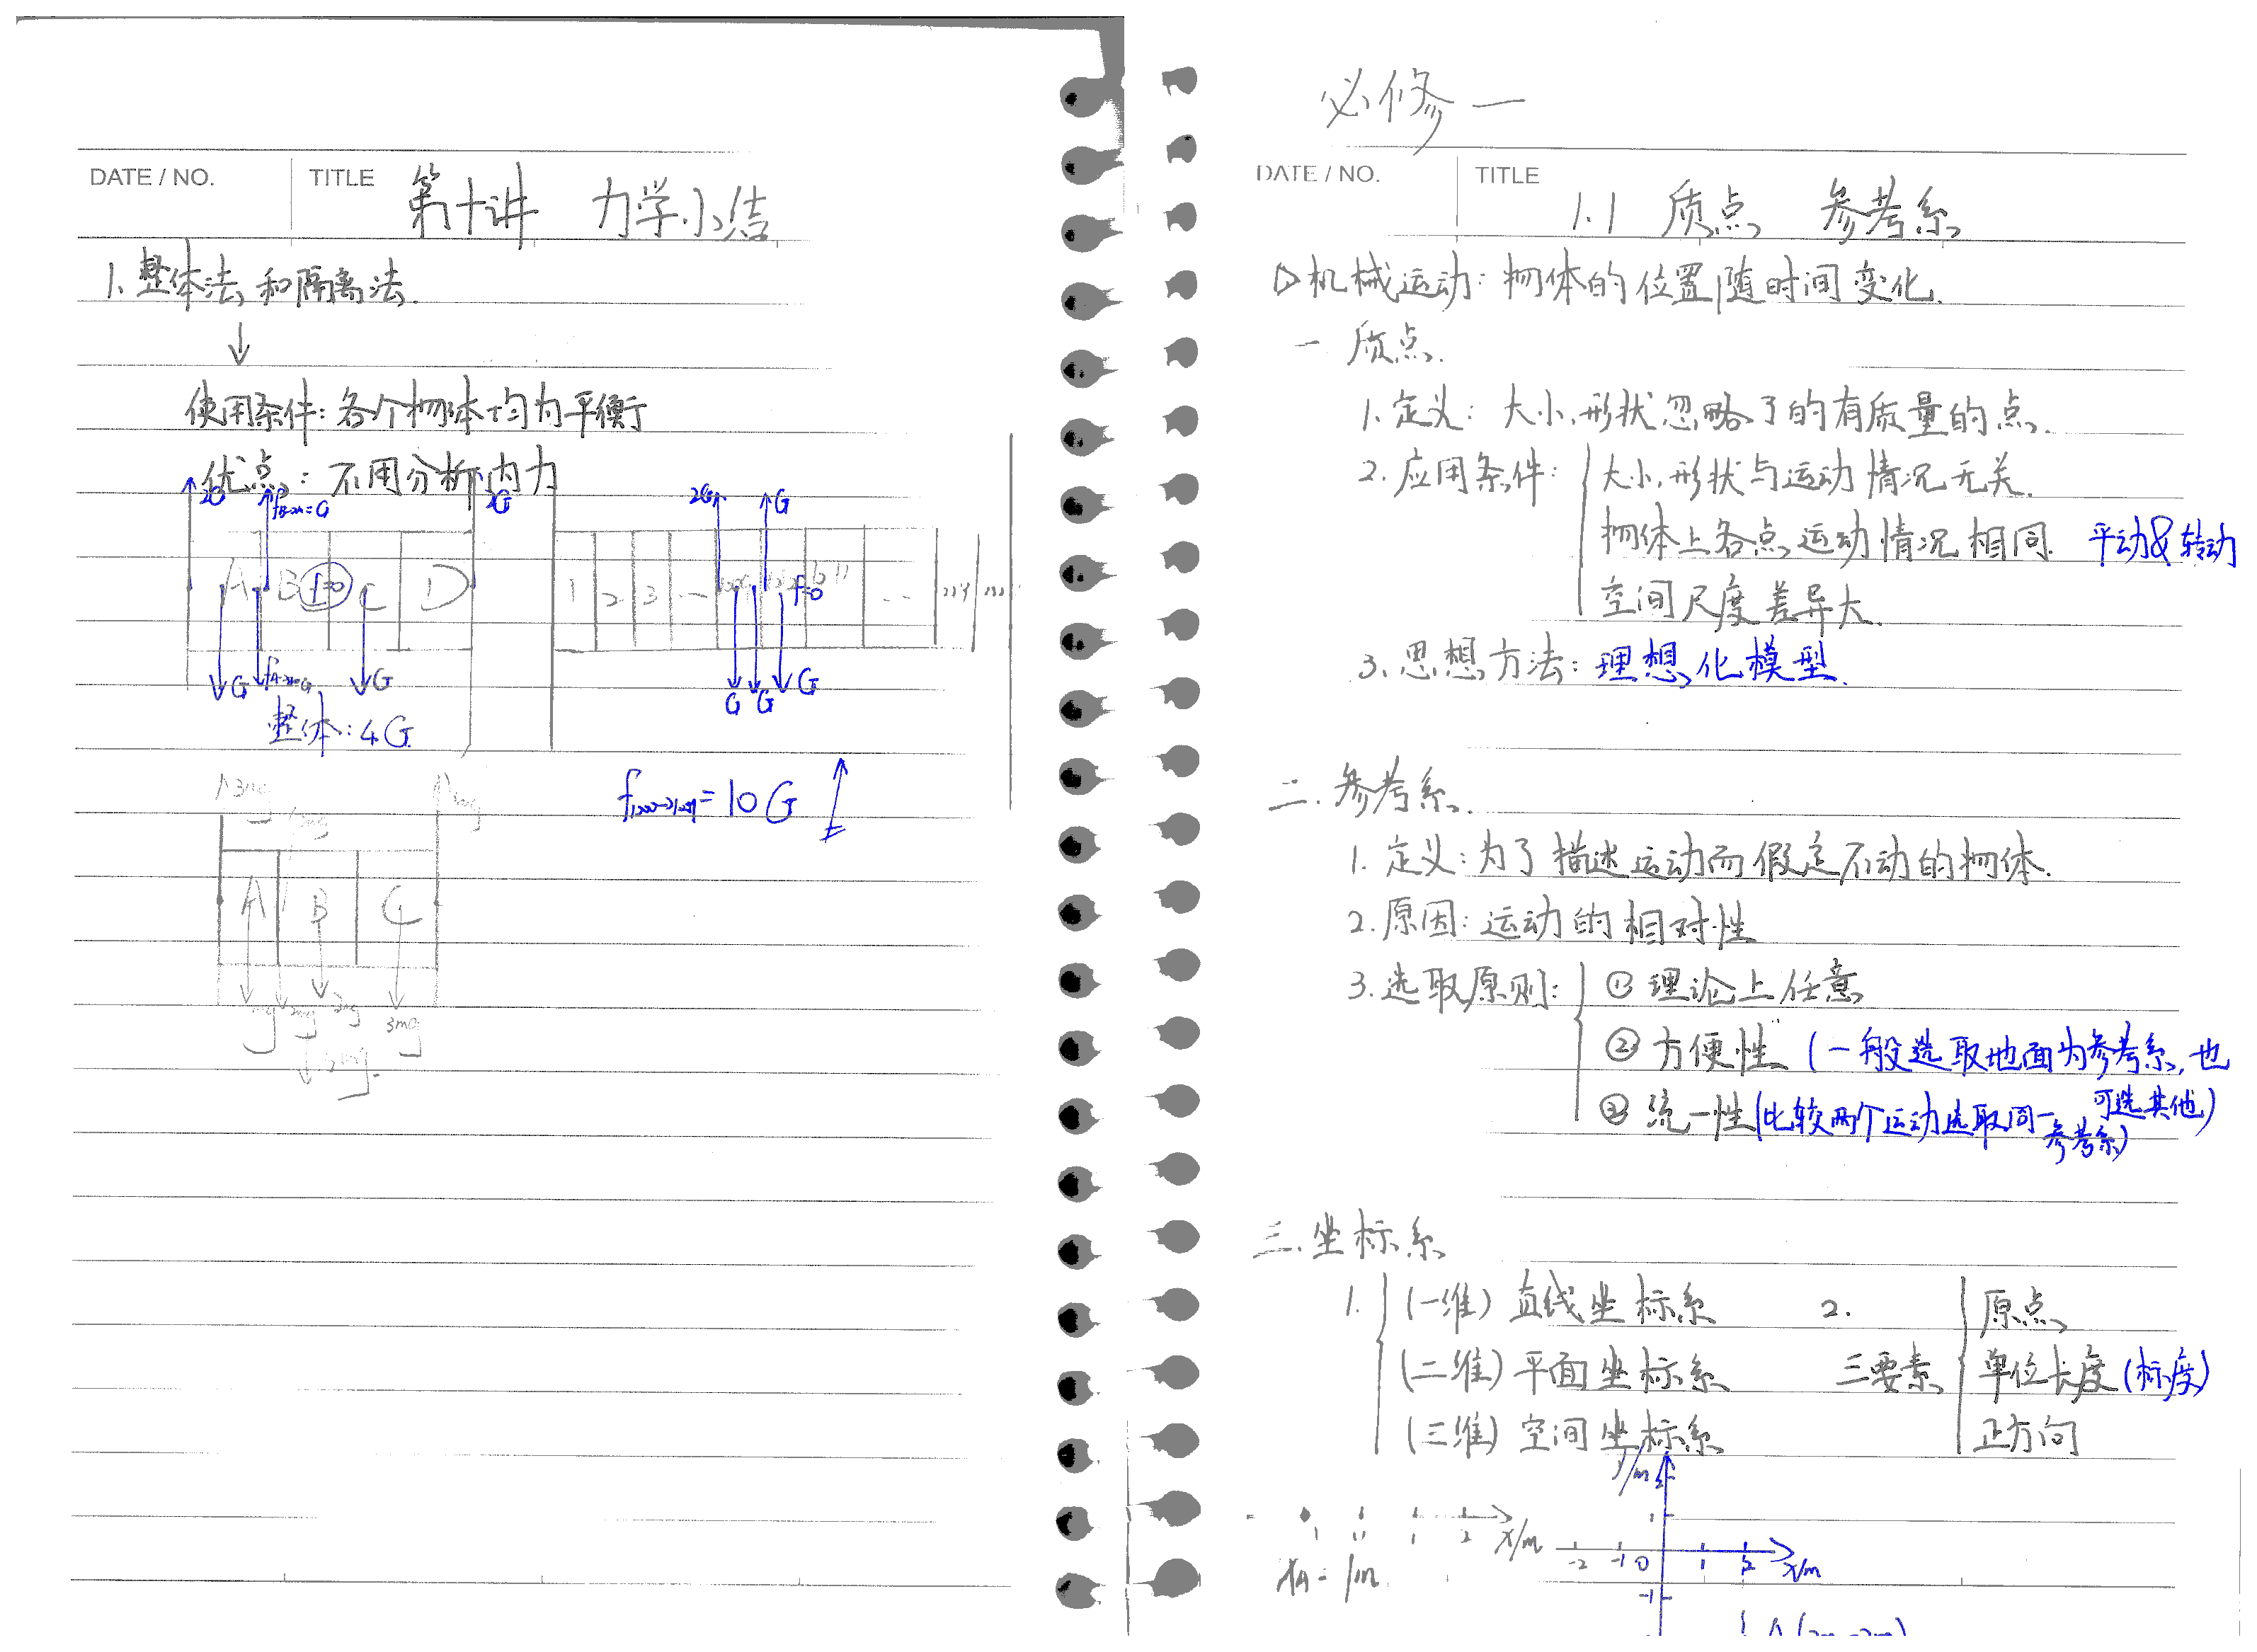 DATE / NO.
TITLE
第十讲 力学小结
1. 整体法和隔离法.
↓
使用条件: 各个物体均为平衡
优点: 不用分析内力
2G
G
2G
2G
G
A B f=0 C D
1 2 3 … f=0 …
G
G
G G G
整体: 4G
=10G
3mg
A B C
2mg
3mg
必修一
DATE / NO.
TITLE
1.1 质点 参考系
机械运动: 物体的位置随时间变化.
一 质点.
1. 定义: 大小,形状忽略了的有质量的点.
2. 应用条件: 大小,形状与运动情况无关.
物体上各点运动情况相同. 平动&转动
空间尺度差异大.
3. 思想方法: 理想化模型.
二. 参考系.
1. 定义: 为了描述运动而假定不动的物体.
2. 原因: 运动的相对性
3. 选取原则: ① 理论上任意
② 方便性 (一般选取地面为参考系, 也
可选其他)
③ 统一性 (比较两个运动选取同一
参考系)
三. 坐标系
1. (一维) 直线坐标系 2. 原点
(二维) 平面坐标系 三要素 单位长度 (标度)
(三维) 空间坐标系 正方向
y/m
1
1 2 x/m
-2 -1 0 1 2 x/m
-1